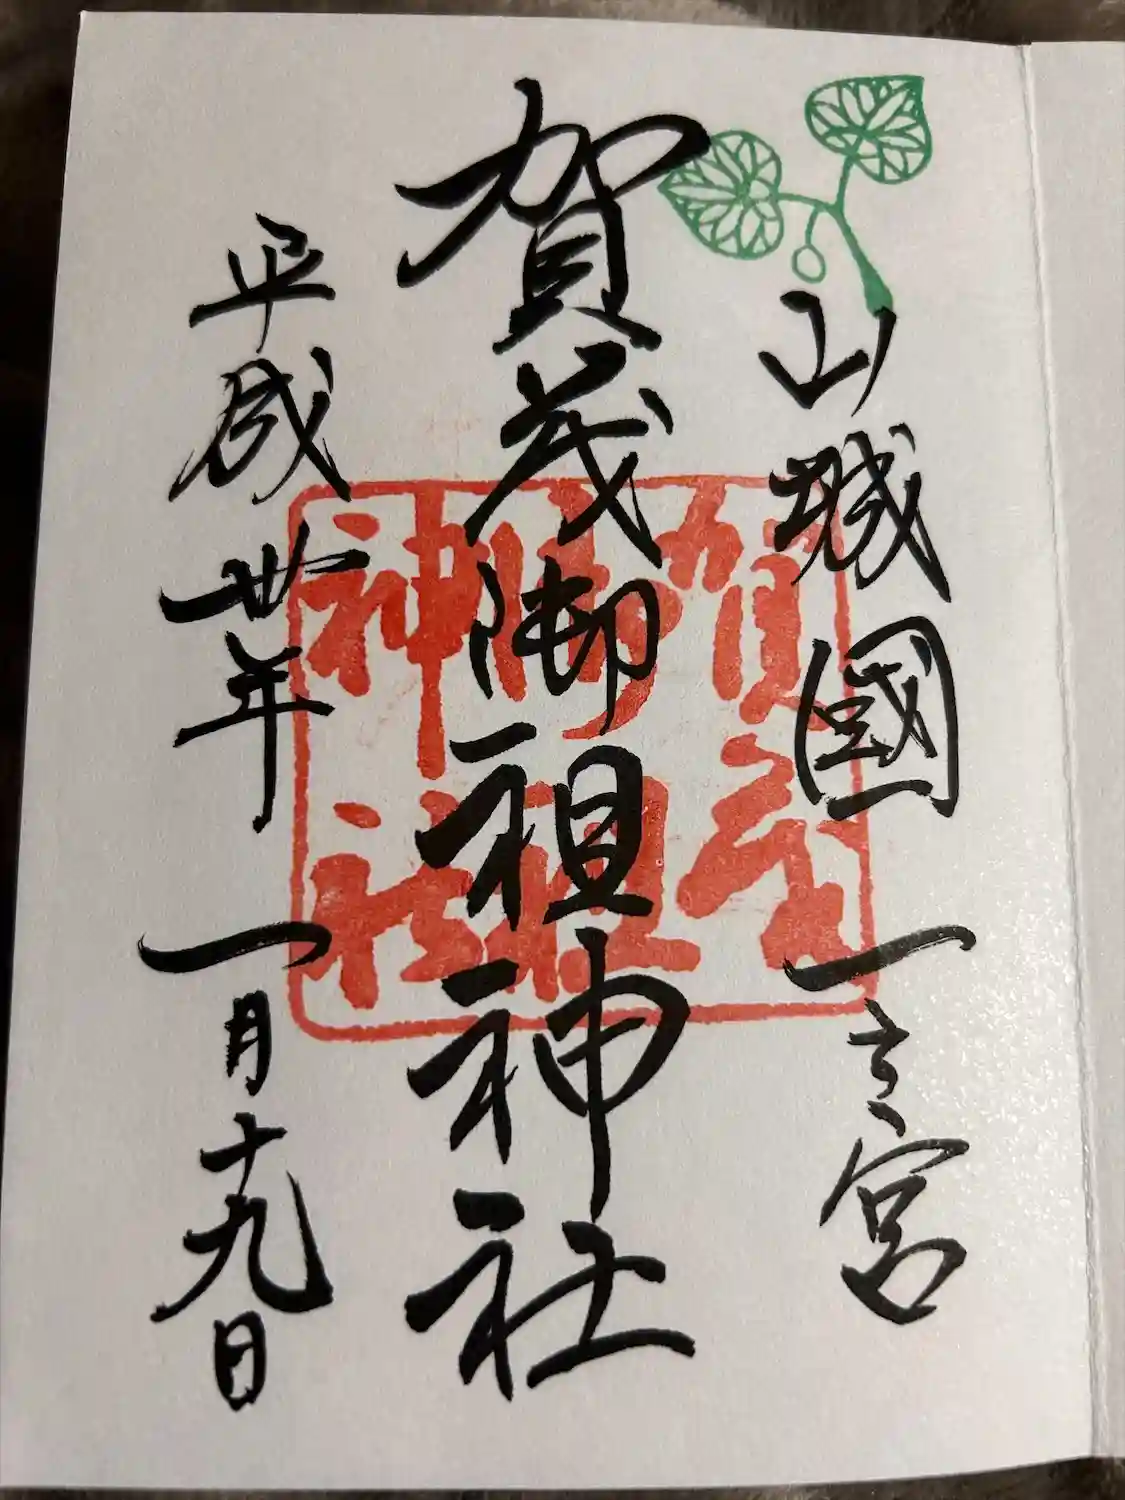 山城國一之宮
賀茂御祖神社
平成卅年一月十九日
賀茂
御祖
神社